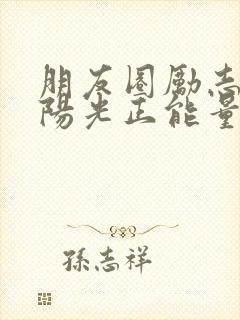 朋友圈励志
陽光正能量
孫志祥